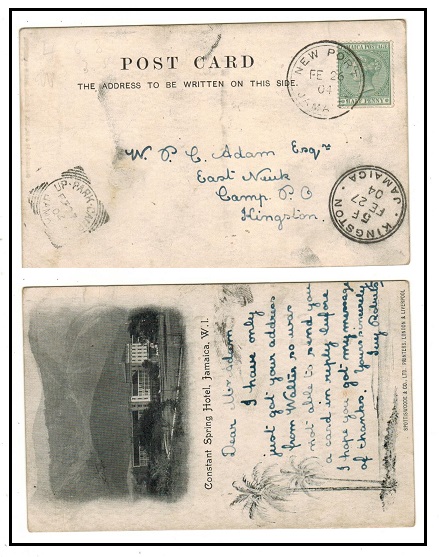 POST CARD
THE ADDRESS TO BE WRITTEN ON THIS SIDE.
JAMAICA POSTAGE
HALF PENNY
NEW PORT
FE 26
04
JAMA
W. P. C. Adam Esqre
East Neuk
Camp. P.O
Kingston.
UP-PARK-CAMP
KINGSTON
5 F
FE 27
04
JAMAICA
Constant Spring Hotel, Jamaica, W. I.
Dear Mr Adam,
I have only
just got your address
from Walter so was
not able to send you
a card in reply before
I hope you got my message
of thanks. Yours sincerely
SPOTTISWOODE & CO. LTD. PRINTERS, LONDON & LIVERPOOL